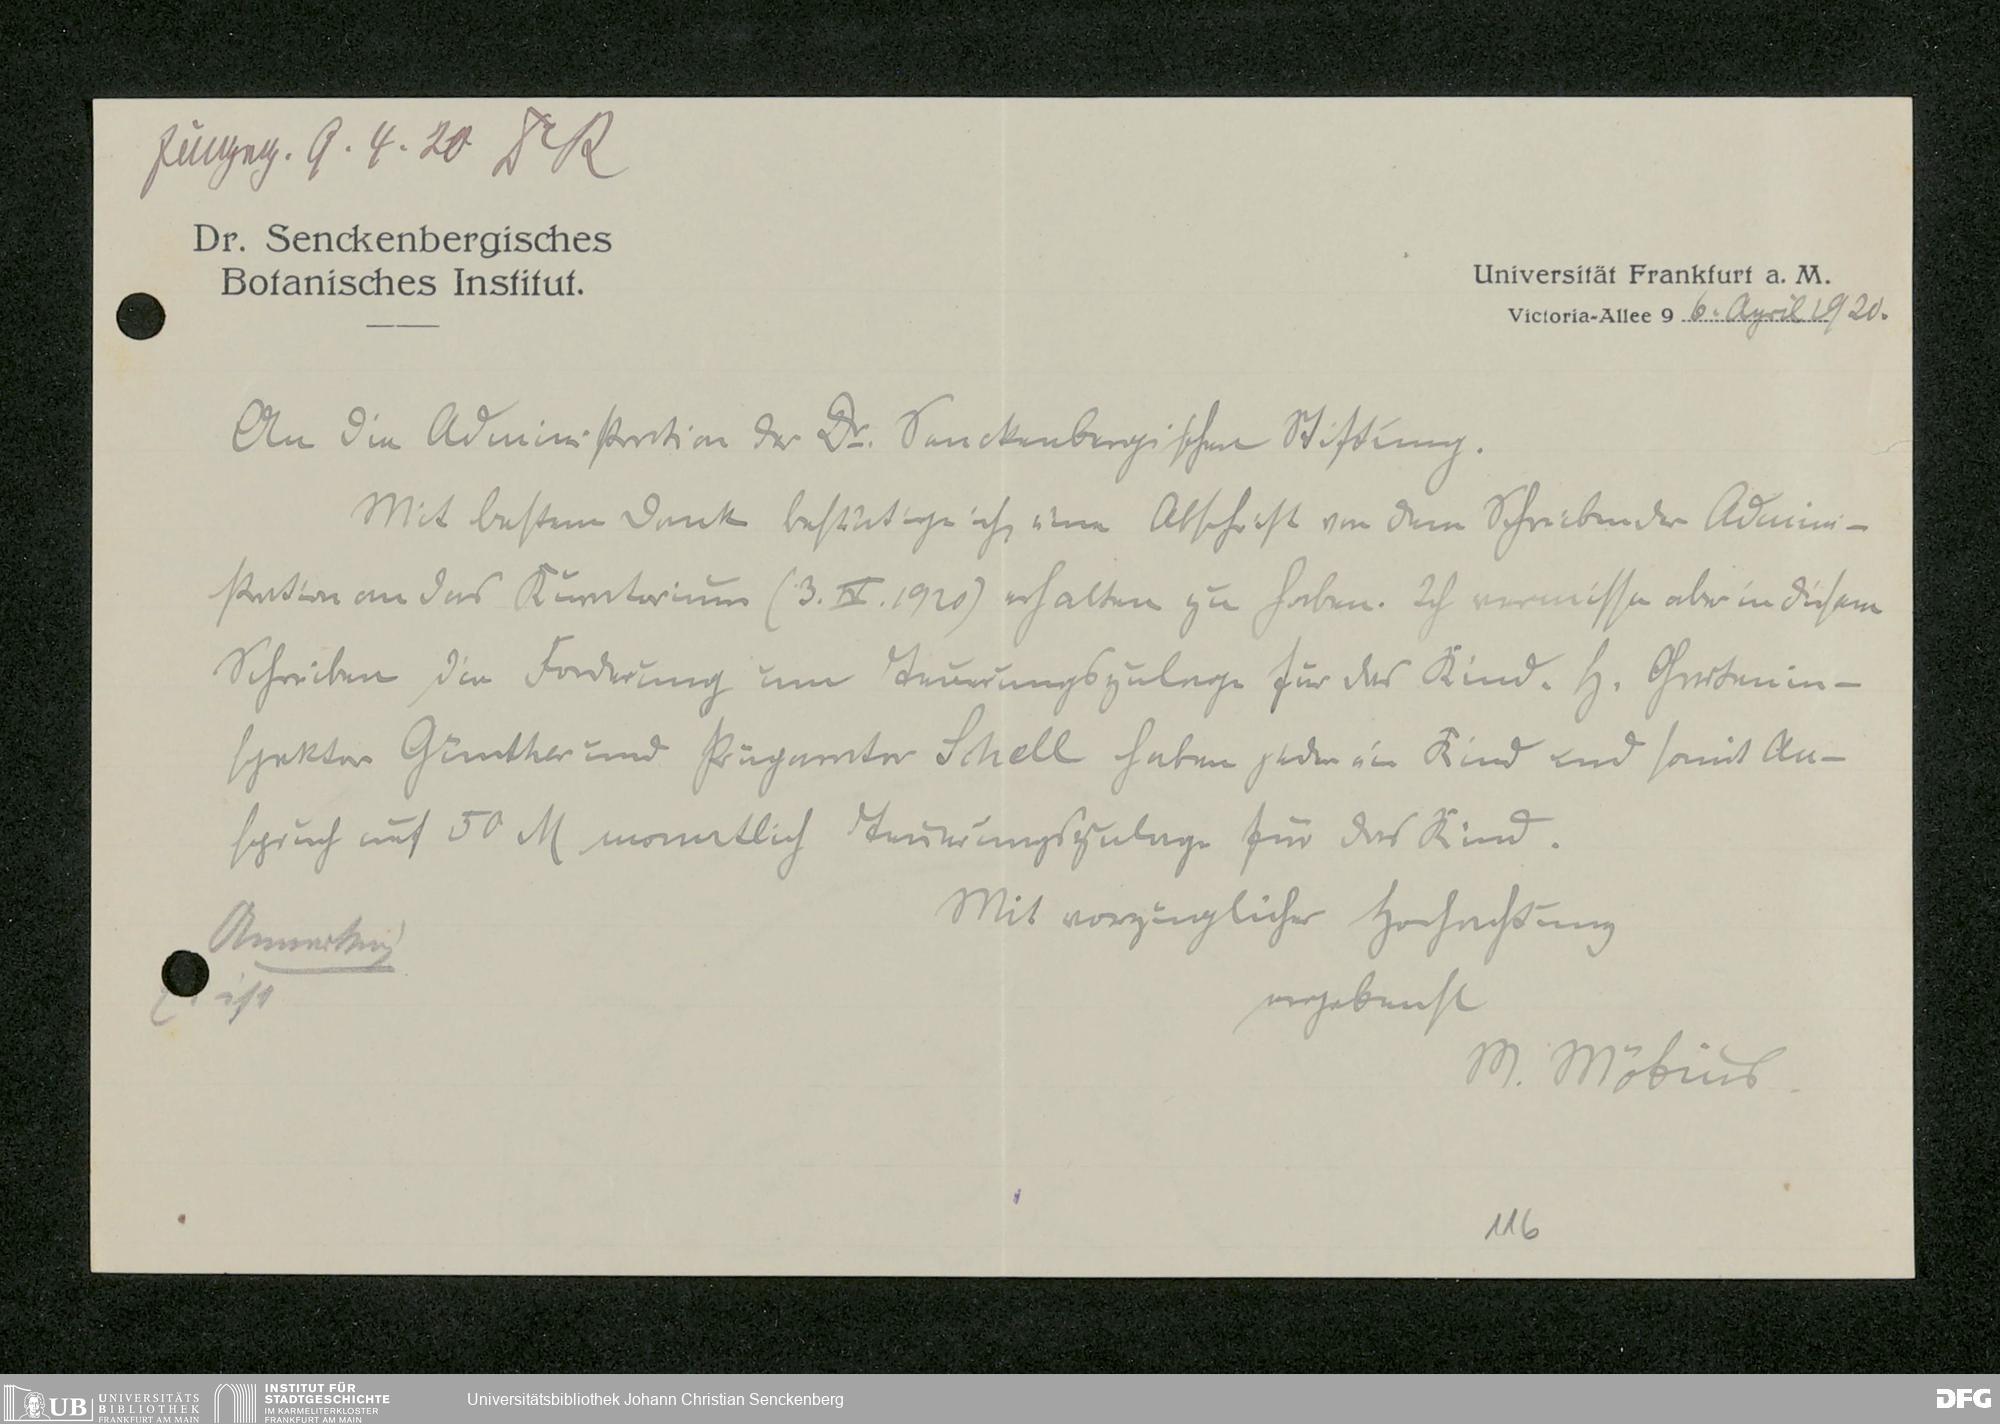 9. 4. 20 Dr R
Dr. Senckenbergisches
Botanisches Institut.
Universität Frankfurt a. M.
Victoria-Allee 9 6. April 1920.
An die Administration der Dr. Senckenbergischen Stiftung.
Mit bestem Dank bestätige ich, eine Abschrift von dem Schreiben der Admini-
stration an das Kuratorium (3. IV. 1920) erhalten zu haben. Ich vermisse aber in diesem
Schreiben die Forderung um Teuerungszulage für das Kind. H. Gartenin-
spektor Günther und Präparator Schell haben jeder ein Kind und somit An-
spruch auf 50 M monatlich Teuerungszulage für das Kind.
Mit vorzüglicher Hochachtung
ergebenst
M. Möbius
ist
116
UB UNIVERSITÄTS
BIBLIOTHEK
FRANKFURT AM MAIN
INSTITUT FÜR
STADTGESCHICHTE
IM KARMELITERKLOSTER
FRANKFURT AM MAIN
Universitätsbibliothek Johann Christian Senckenberg
DFG